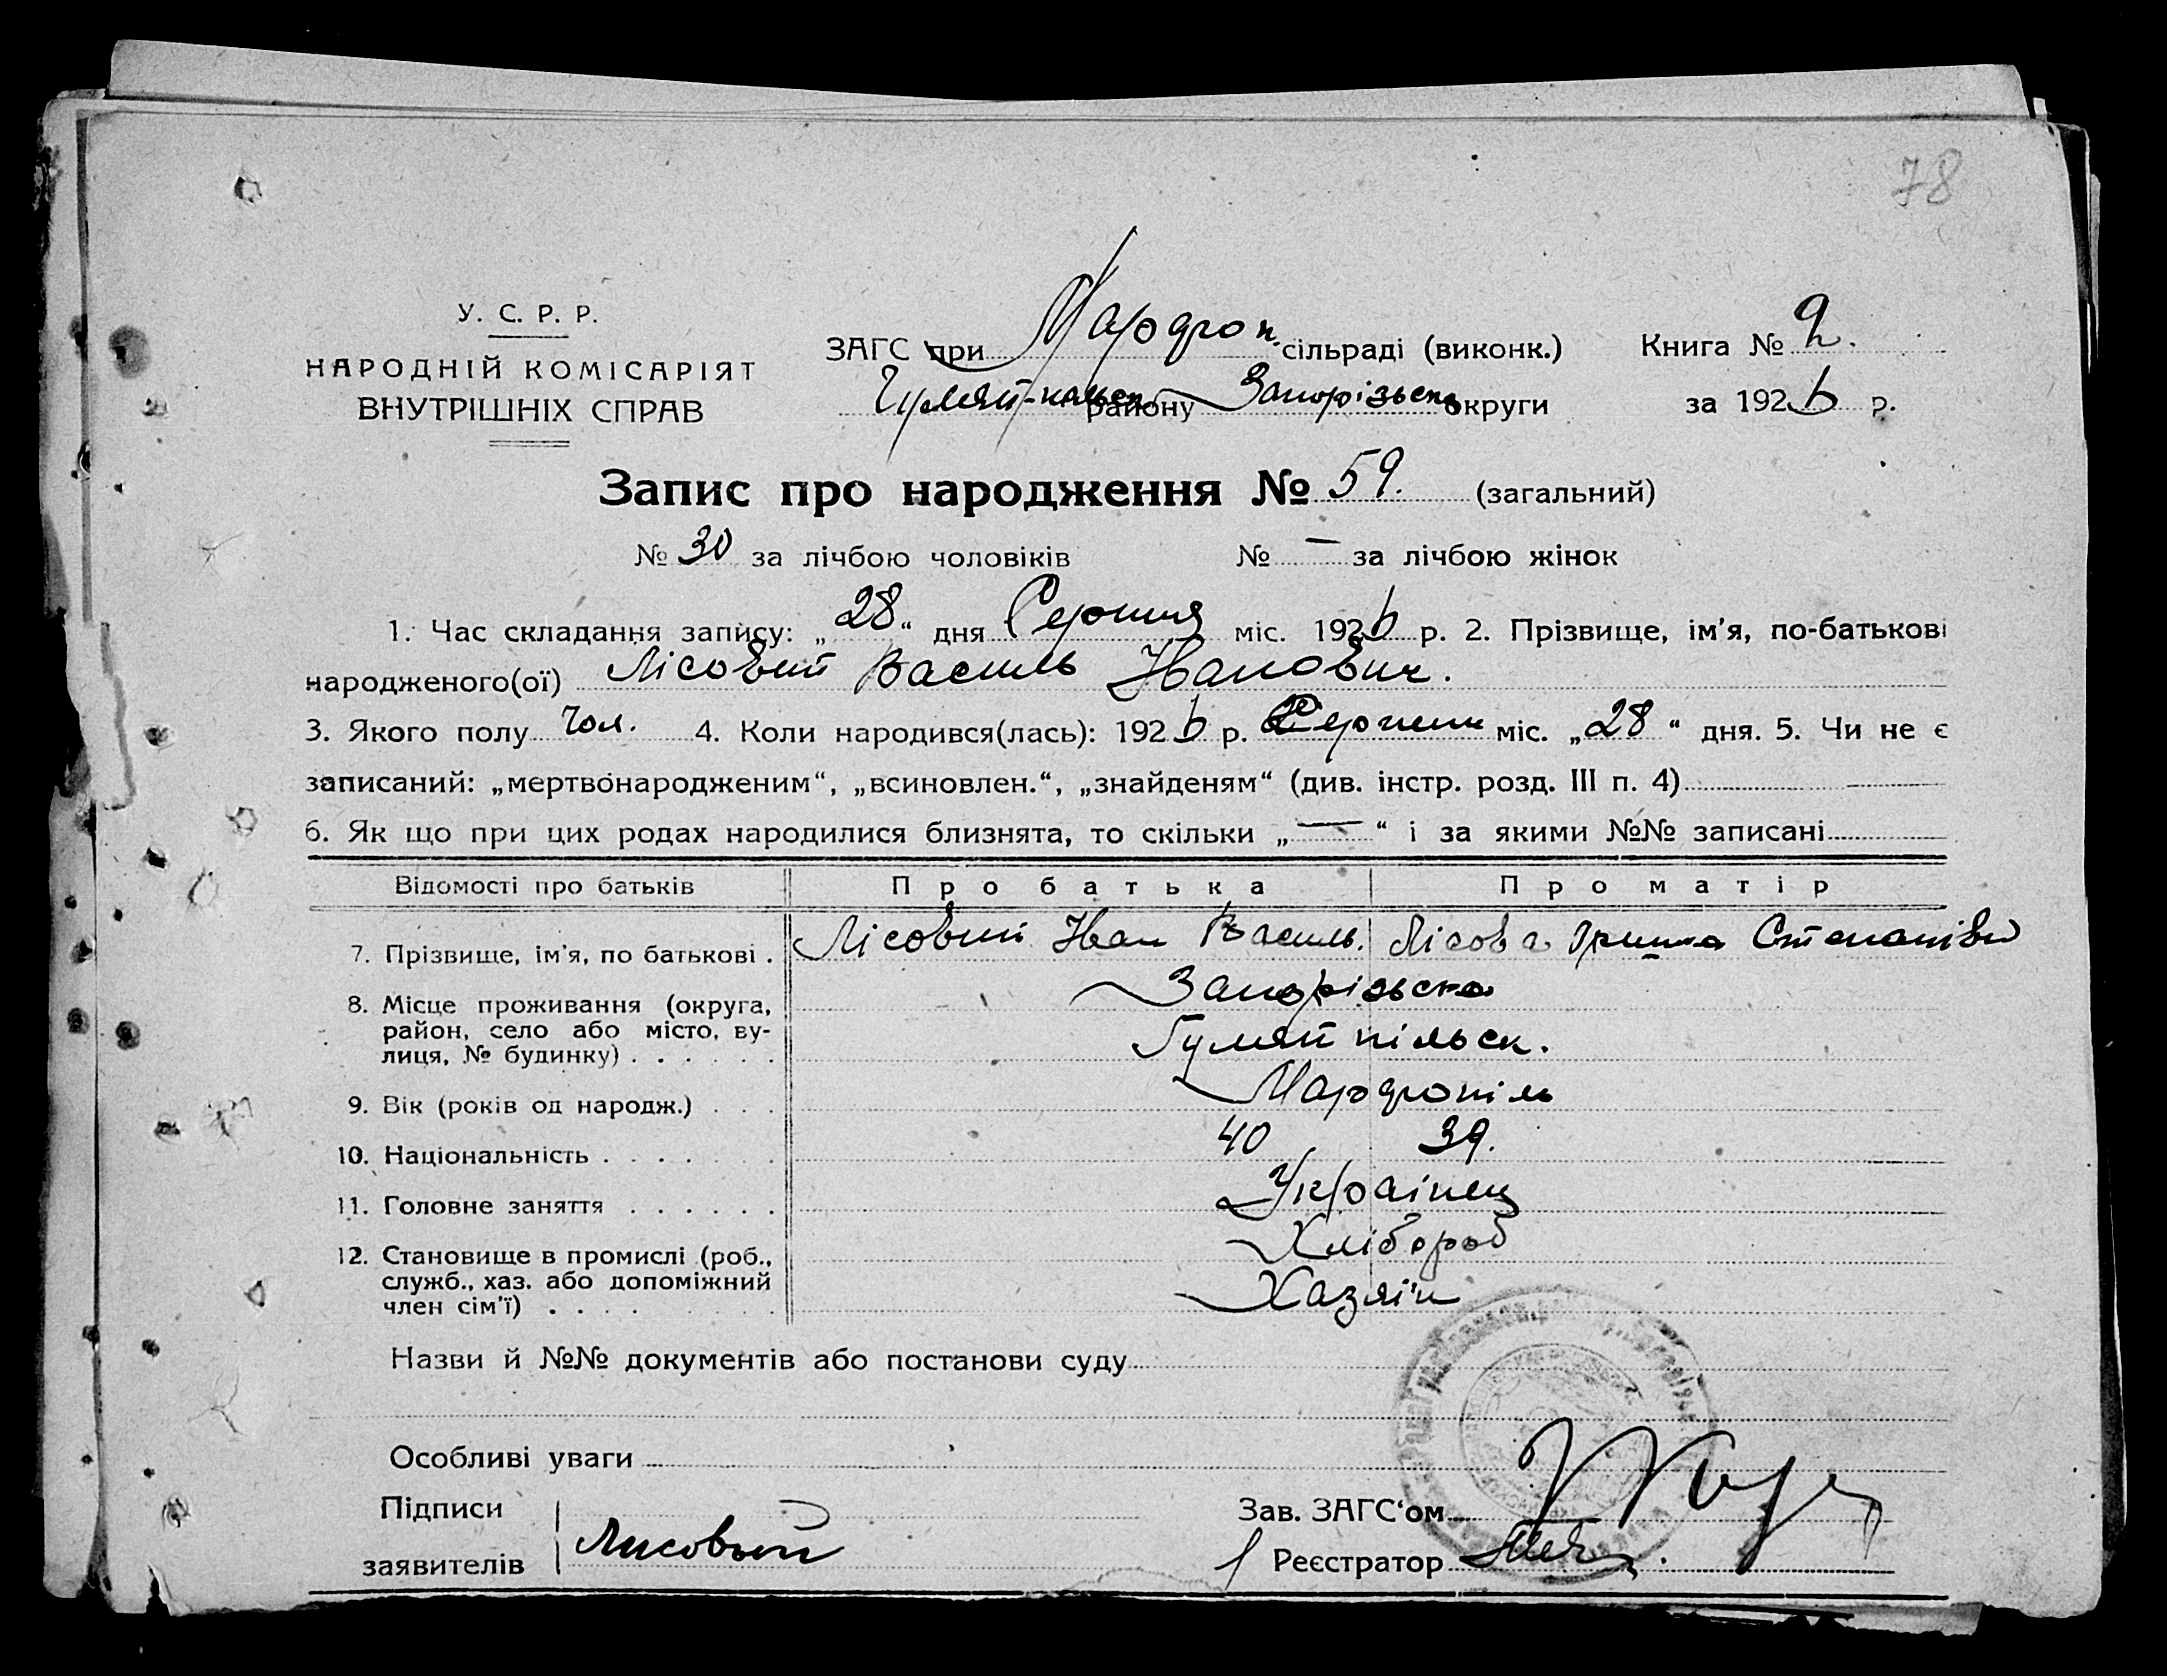 78
У. С. Р. Р.
НАРОДНІЙ КОМІСАРІЯТ
ВНУТРІШНІХ СПРАВ
ЗАГС при Марфоп. сільраді (виконк.)
Гуляйпільськ району Запорізьск округи
Книга № 2.
за 1926 р.
Запис про народження № 59. (загальний)
№ 30 за лічбою чоловіків № — за лічбою жінок
1. Час складання запису: „28“ дня Серпня міс. 1926 р. 2. Прізвище, ім'я, по-батькові
народженого(ої) Лісовий Василь Іванович.
3. Якого полу Чол. 4. Коли народився(лась): 1926 р. Серпень міс. „28“ дня. 5. Чи не є
записаний: „мертвонародженим“, „всиновлен.“, „знайденям“ (див. інстр. розд. III п. 4)
6. Як що при цих родах народилися близнята, то скільки „—“ і за якими №№ записані
Відомості про батьків Про батька Про матір
7. Прізвище, ім'я, по батькові . Лісовий Іван Василь. Лісова Орина Степанівн
8. Місце проживання (округа, Запорізьска
район, село або місто, ву-
лиця, № будинку) . . . . . . Гуляйпільск.
9. Вік (років од народж.) . . . Марфопіль
10. Національність . . . . . . 40 39.
11. Головне заняття . . . . . . Українец
12. Становище в промислі (роб., Хлібороб
служб., хаз. або допоміжний
член сім'ї) . . . . Хазяїн
Назви й №№ документів або постанови суду
Особливі уваги
Підписи
заявителів Лисовый
Зав. ЗАГС‘ом
Реєстратор